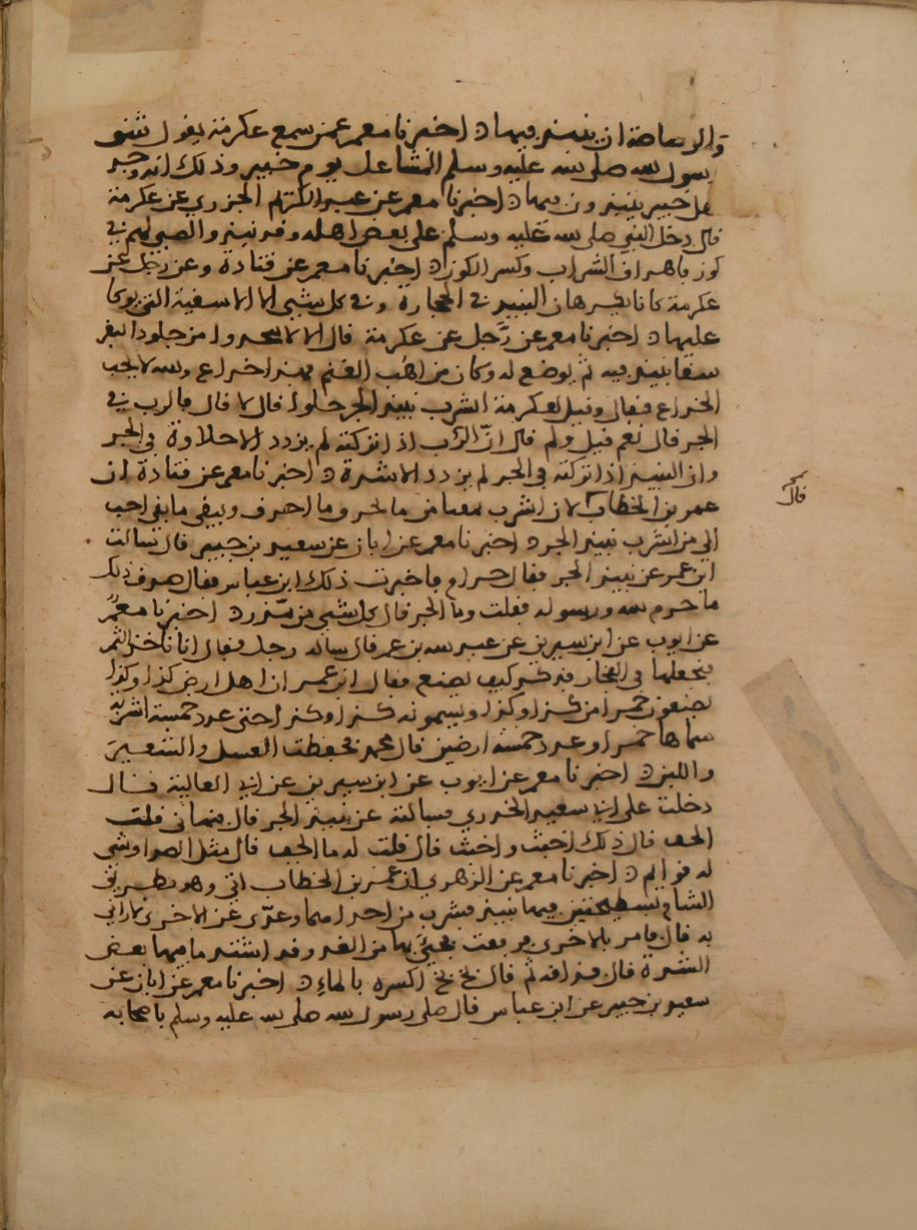 والرصاصة ان ينبذ فيها ٥ اخبرنا معمر عمن سمع عكرمة يقول شق
رسول الله صلى الله عليه وسلم المشاعل يوم خيبر وذلك انه وجد
اهل خيبر ينبذون فيها ٥ اخبرنا معمر عن عبد الكريم الجزري عن عكرمة
قال دخل النبي صلى الله عليه وسلم على بعض اهله وقد نبذوا لصبي لهم في
كوز فاهراق الشراب وكسر الكوز ٥ اخبرنا معمر عن قتادة وعن رجل عن
عكرمة كانا يكرهان النبيذ في الحجارة وفي كل شي الا الاسقية التي يوكا
عليها ٥ اخبرنا معمر عن رجل عن عكرمة قال الا من جلود البقر
سقا ينبذ فيه ثم يوضع له وكان من اهب الغنم فهذا خداع والله لا يحب
الخداع فقال وقيل لعكرمة انشرب نبيذ الجر حلوا قال لا قال فالرب في
الجر قال نعم قيل ولم قال ان الرب اذا تركته لم يزدد الا حلاوة في الجر
وان النبيذ اذا تركته في الجر لم يزدد الا شدة ٥ اخبرنا معمر عن قتادة ان
عمر بن الخطاب لان اشرب قمقما من ما احرق ما احرق ويبقي ما بقي احب
الي من اشرب نبيذ الجر ٥ اخبرنا معمر عن ابان عن سعيد بن جبير قال سالت
ابن عمر عن نبيذ الجر فقال حرام فاخبرت ذلك ابن عباس فقال صدق ذلك
ما حرم الله ورسوله فقلت وما الجر قال كل شي من مدر ٥ اخبرنا معمر
عن ايوب عن ابن سيرين عن عبد الله بن عمر قال ساله رجل فقال انا ناخذ التمر
فنجعلها في الفخار فذكر كيف يصنع فقال ابن عمر ان اهل ارض كذا وكذا
يصنعون خمرا من كذا وكذا ويسمونه كذا وكذا حتى عدد خمسة اشربة
سماها خمرا وعدد خمسة ارضين قال محمد فحفظت العسل والشعير
واللبن ٥ اخبرنا معمر عن ايوب عن ابن سيرين عن ابي العالية قال
دخلت على ابي سعيد الخدري فسالته عن نبيذ الجر قال فنهاني قلت
الجف قال ذلك اخبث واخبث قال قلت له ما الجف قال مثل الصواوشي
له قوايم ٥ اخبرنا معمر عن الزهري ان عمر بن الخطاب اتي وهو بطريق
الشام بسطيحتين فيهما نبيذ فشرب من احداهما وعدى عن الاخرى
به قال فامر بالاخرى فرفعت فجي بها من الغد وقد اشتد ما فيها بعض
الشدة قال فذاقه ثم قال بخ بخ اكسره بالماء ٥ اخبرنا معمر عن ابان عن
سعيد بن جبير عن ابن عباس قال صلى رسول الله صلى الله عليه وسلم باصحابه
قال